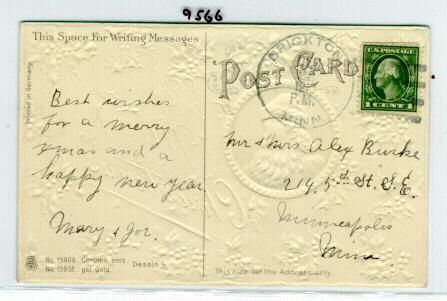 9566
This Space For Writing Messages
Printed in Germany.
Best wishes
for a merry
xmas and a
happy new year.
Mary & Joe.
No. 15909. Chromo emb.
No. 15932. gel. Gold.
Dessin 4.
BRICKTON
P.M.
MINN.
POST CARD
U.S. POSTAGE
1 CENT 1
Mr & Mrs Alex Burke
214, 5th St. S.E.
Minneapolis
Minn.
This side for the Address only.